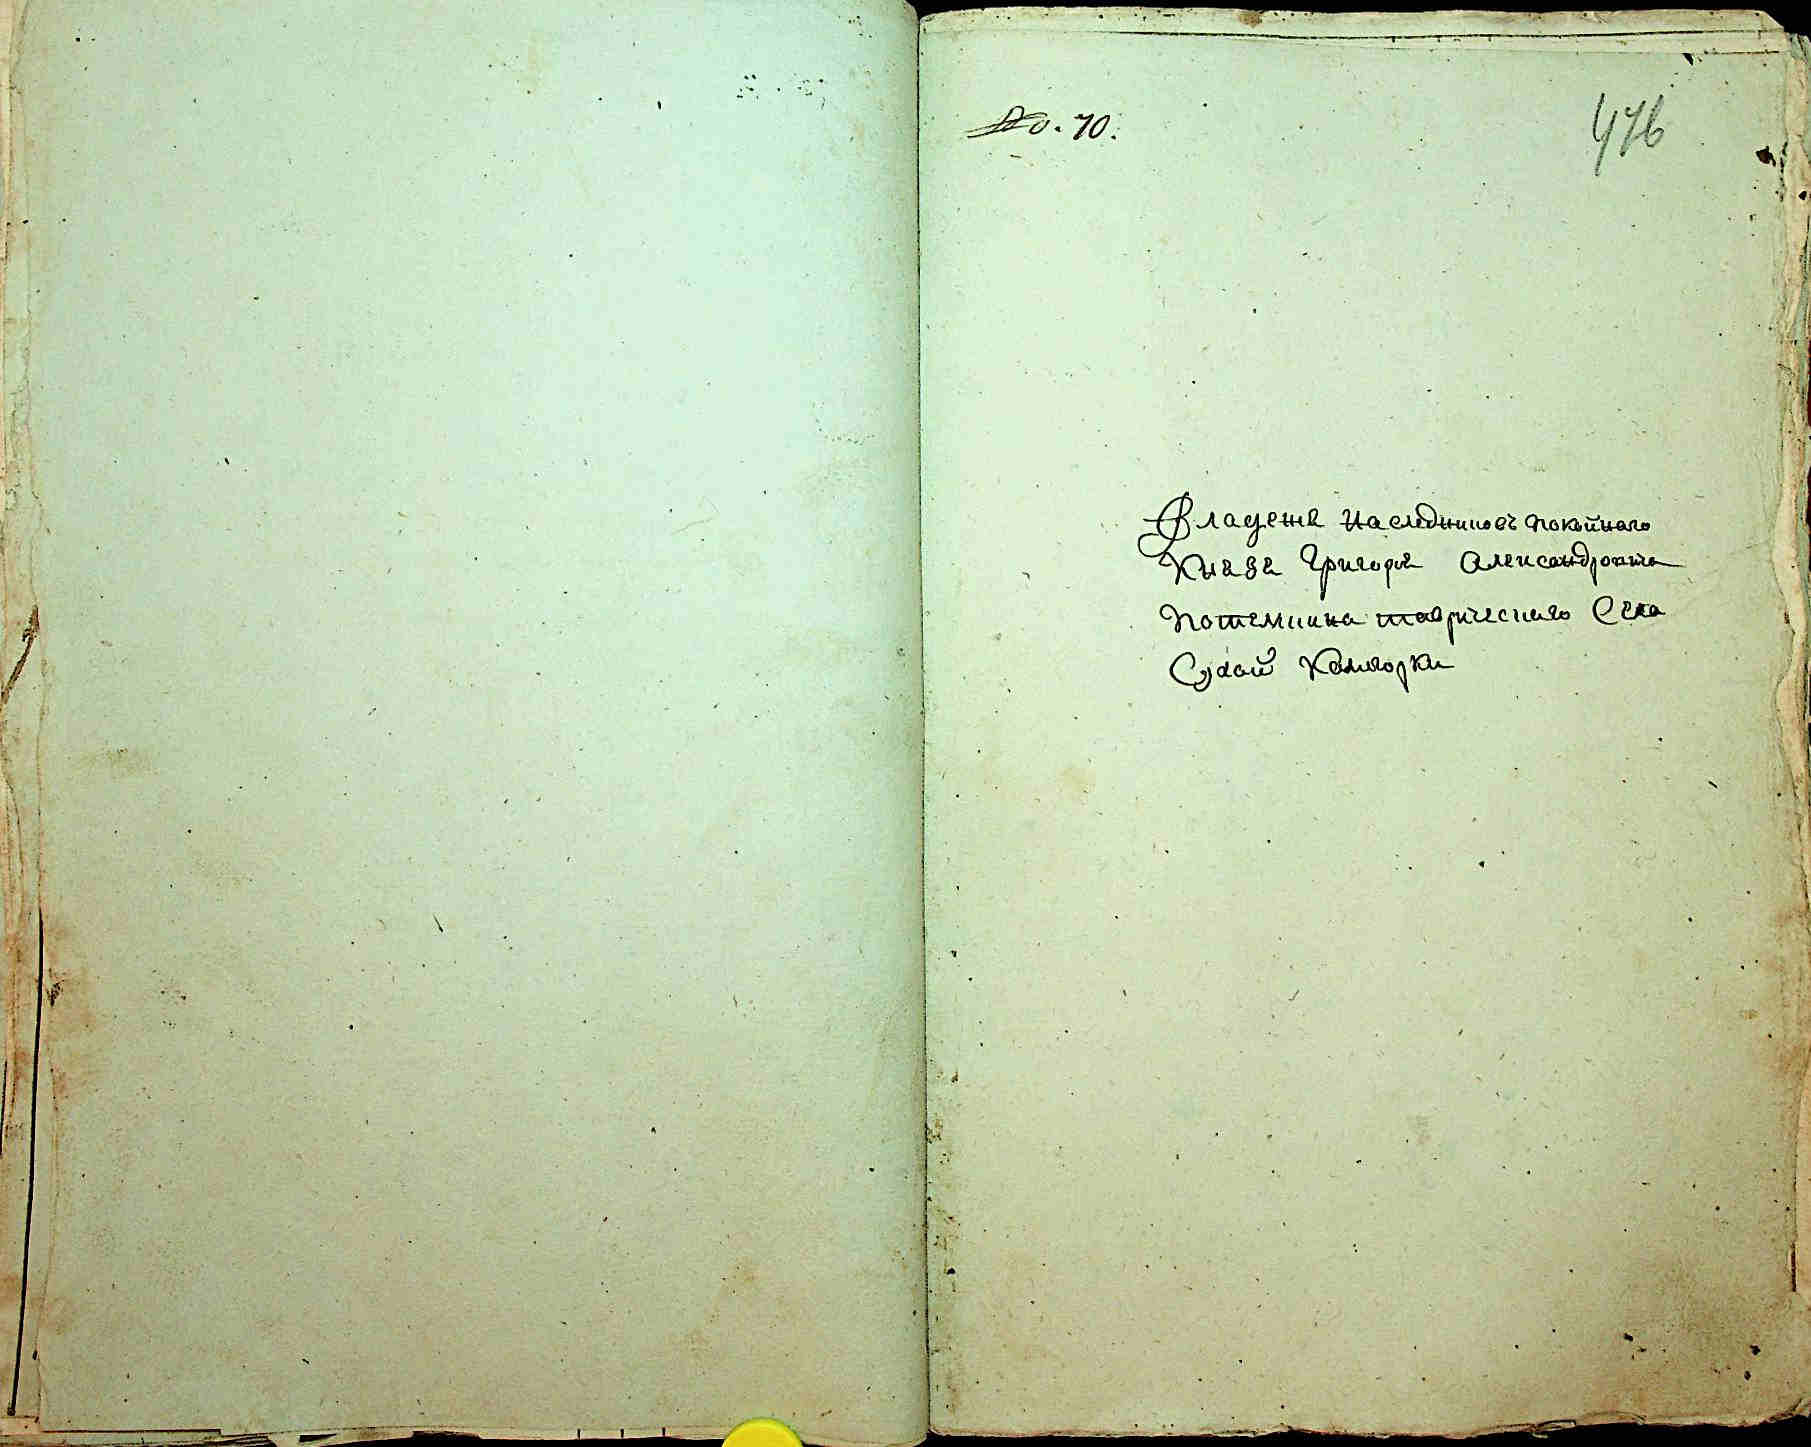 No. 70.
476
Владения наследниковъ покойнаго
Князя Григорья Александровича
Потемкина таврическаго Села
Сухой Камягорки